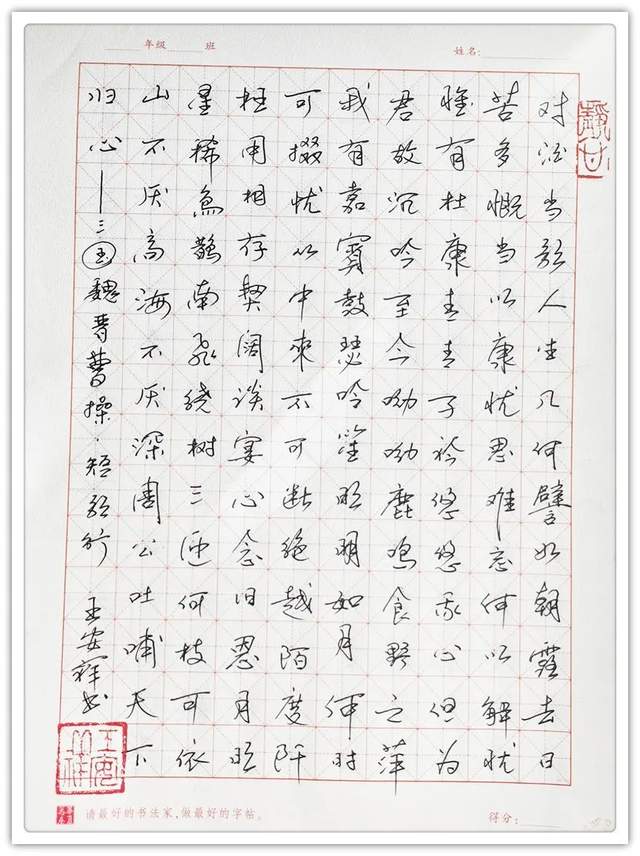 年级 班 姓名:
对酒当歌人生几何譬如朝露去日
苦多慨当以康忧思难忘何以解忧
惟有杜康青青子衿悠悠我心但为
君故沉吟至今呦呦鹿鸣食野之萍
我有嘉賓鼓瑟吹笙明明如月何时
可掇忧从中來不可断绝越陌度阡
枉用相存契阔谈宴心念旧恩月明
星稀乌鹊南飞绕树三匝何枝可依
山不厌高海不厌深周公吐哺天下
归心——三国魏晋曹操·短歌行 王安祥书
请最好的书法家,做最好的字帖。 得分: